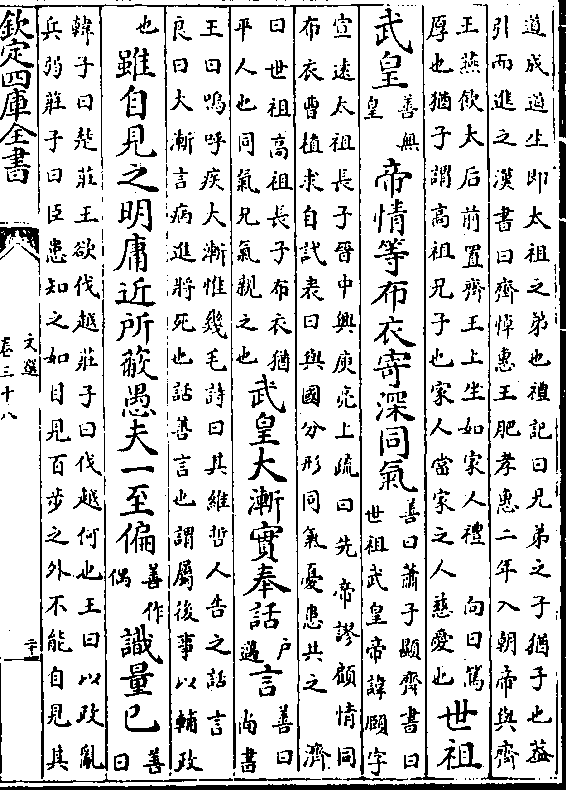 道成道生即太祖之弟也禮記曰兄弟之子猶子也蓋
引而進之漢書曰齊悼惠王肥孝惠二年入朝帝與齊
王燕飲太后前置齊王上坐如家人禮 向曰篤
厚也猶子謂高祖兄子也家人當家之人慈愛也世祖
武皇善無皇帝情等布衣寄深同氣善曰蕭子顯齊書曰世祖武皇帝諱賾字
宣遠太祖長子晉中興庾亮上疏曰先帝謬顧情同
布衣曹植求自試表曰與國分形同氣憂患共之 濟
曰世祖高祖長子布衣猶
平人也同氣兄氣親之也武皇大漸實奉話戶邁言善曰尚書
王曰嗚呼疾大漸惟幾毛詩曰其維哲人告之話言
良曰大漸言病進將死也話善言也謂屬後事以輔政
也雖自見之明庸近所蔽愚夫一至偏善作偶識量已善曰
韓子曰楚莊王欲伐越莊子曰伐越何也王曰以政亂
兵弱莊子曰臣患知之如目見百步之外不能自見其
欽定四庫全書
文選
卷三十八